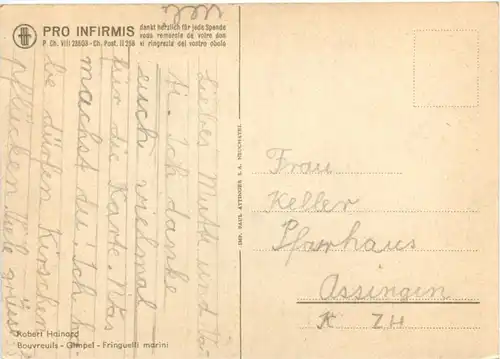 PRO INFIRMIS
dankt herzlich für jede Spende
vous remercie de votre don
vi ringrazia del vostro obolo
P. Ch. VIII 23503 - Ch. Post. II 258
Liebes Mutti und Va-
ti. Ich danke
euch vielmal
für die Karte. Was
machst du? Ich ha-
be dürfen Kirschen
pflücken. Viele grüsse
IMP. PAUL ATTINGER S.A. NEUCHATEL
Frau
Keller
Pfarrhaus
Assingen
K ZH
Robert Hainard
Bouvreuils - Gimpel - Fringuelli marini